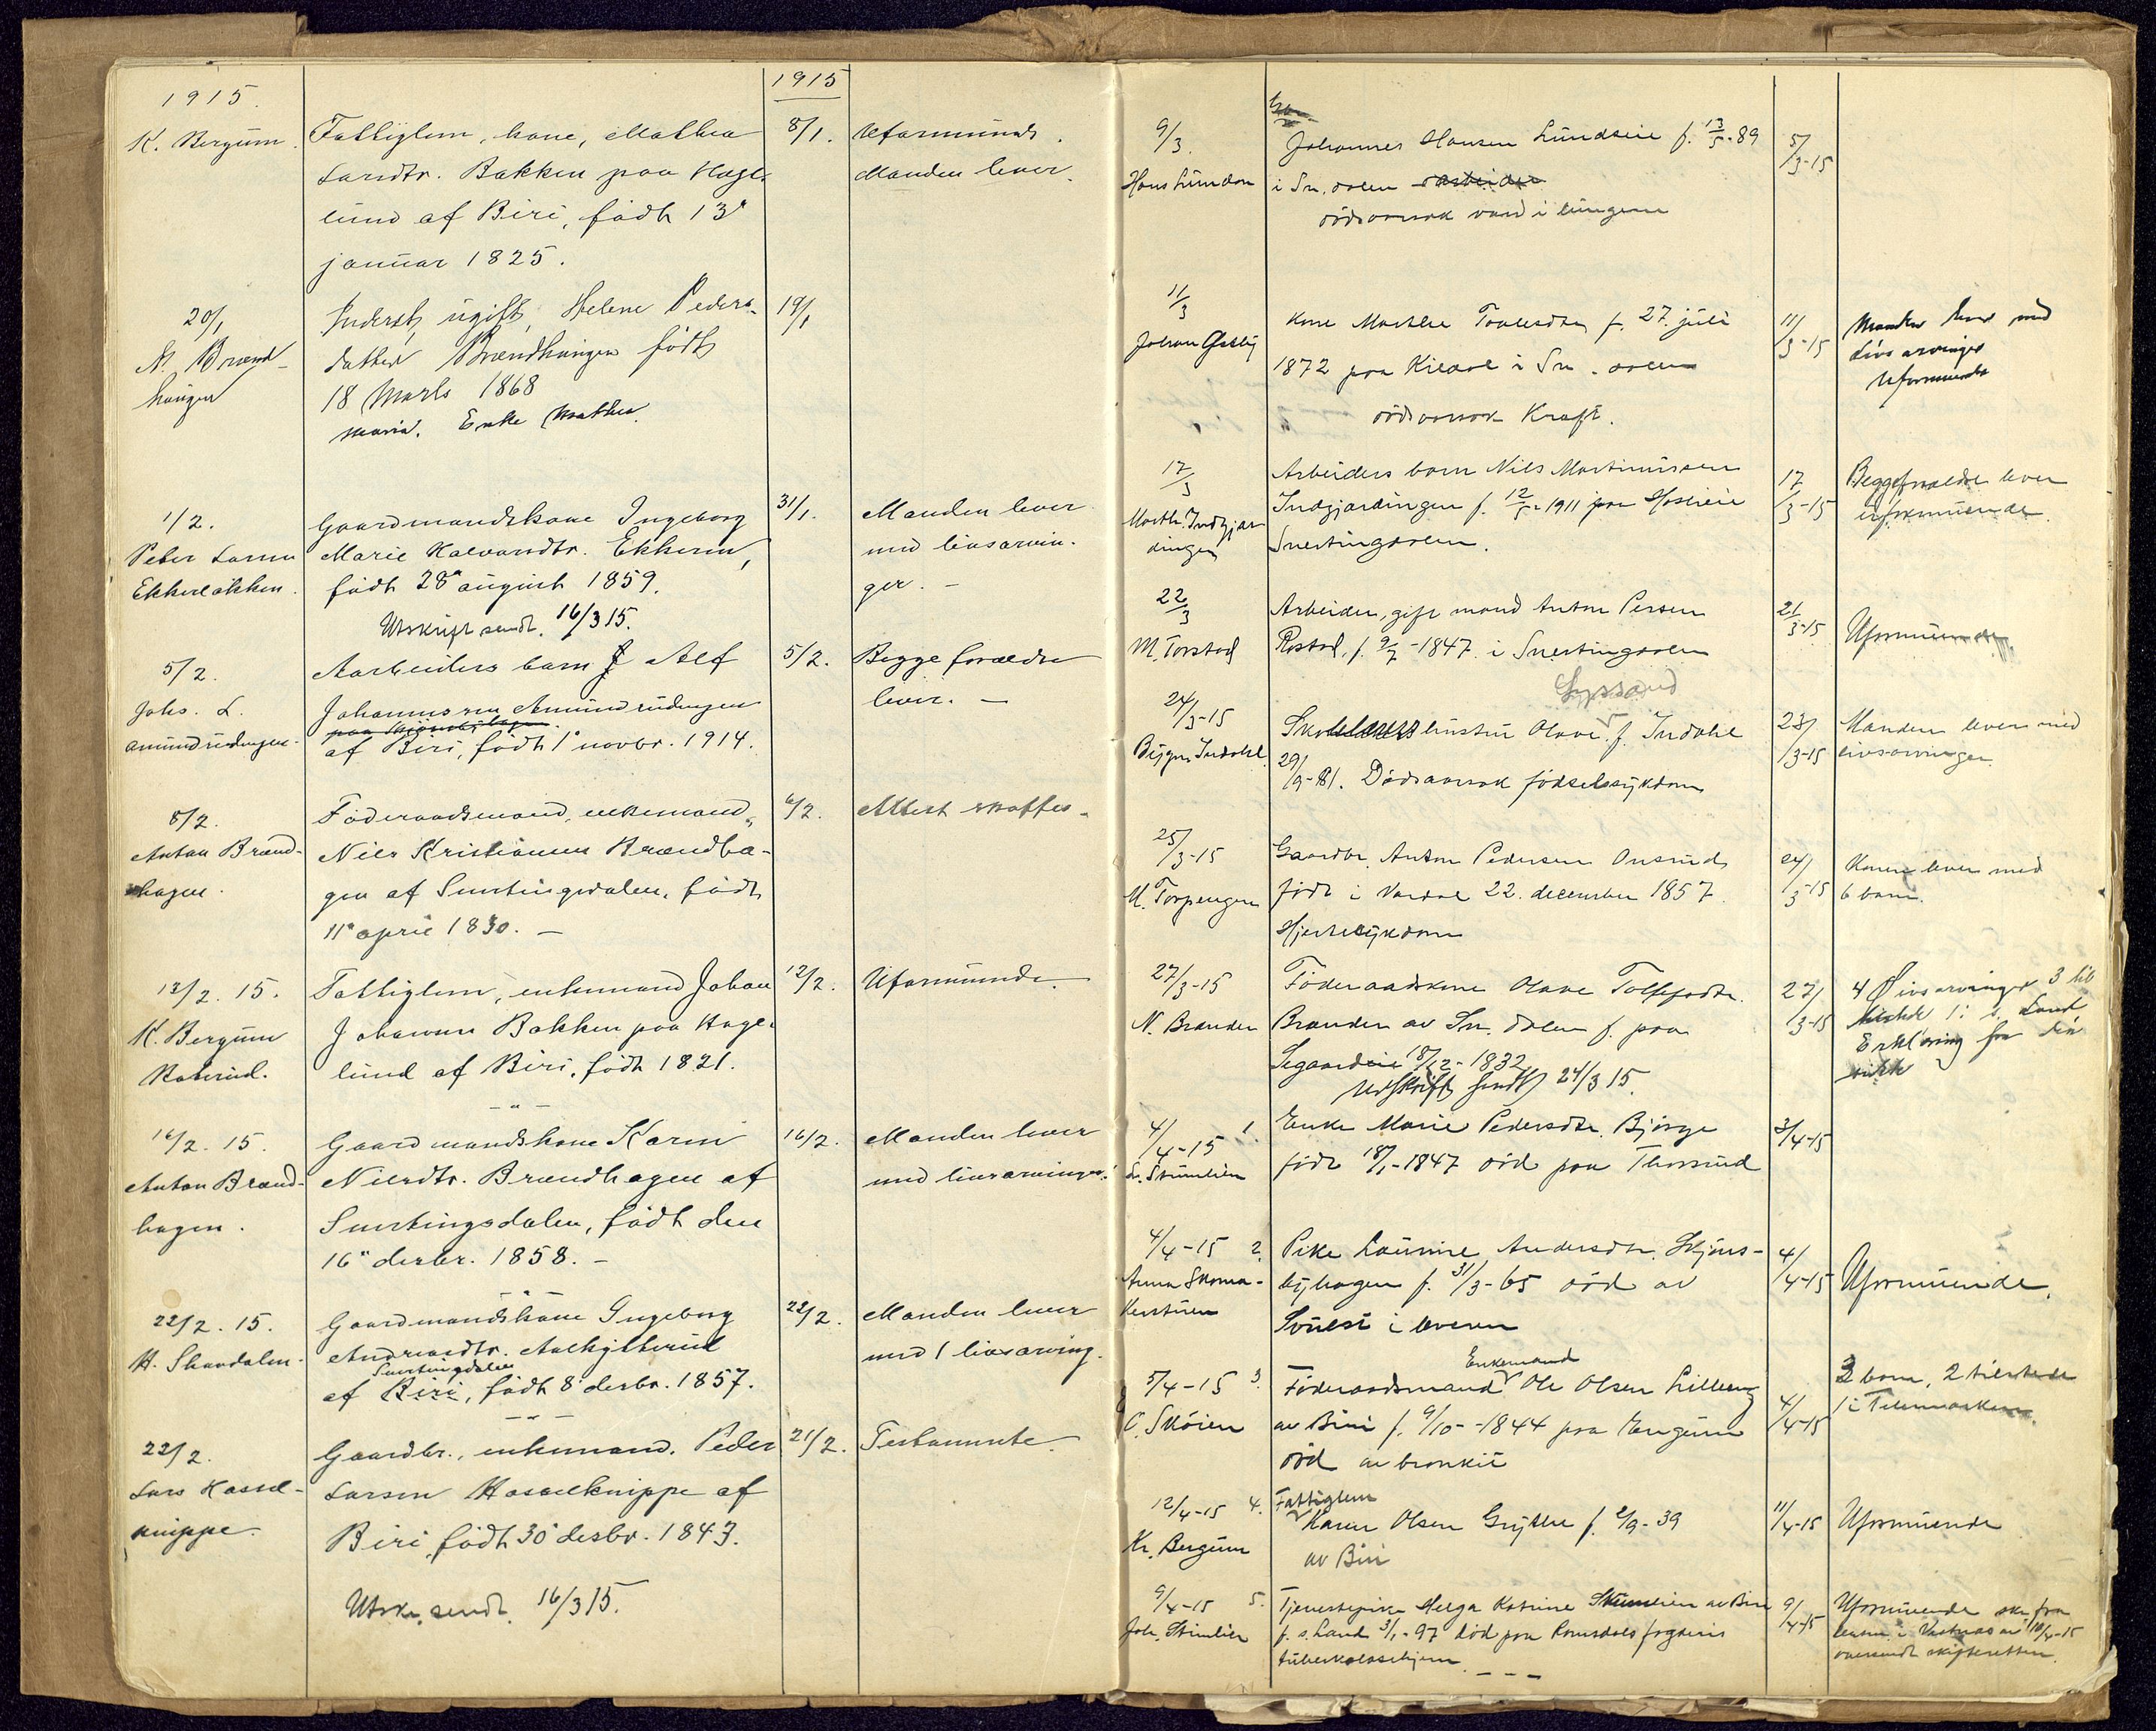 1915.
1915
K. Bergum.
Fattiglem, kone, Mathea
8/1.
Uformuende.
Larsdtr. Bakken paa Hage-
Manden lever.
lund af Biri, født 13'
januar 1825.
20/1
Inderst, ugift, Helene Peders-
19/1
N. Brænd-
datter Brændhaugen født
haugen
18 Marts 1868
Maria. Enke Mathea.
1/2.
Gaardmandskone Ingeborg
31/1.
Manden lever
Peter Larsen
Marie Halvorsdtr. Ekkern,
med livsarvin-
Ekkerløkken.
født 28' august 1859.
ger. -
Utskrift sendt. 16/3 15.
5/2.
Aarbeiders barn Alf
5/2.
Begge forældre
Johs. L.
Johannesen Amundrudengen
lever. -
Amundrudengen.
af Biri, født 1' novbr. 1914.
8/2.
Föderaadsmand, enkemand,
6/2.
Attest skaffes.
Anton Brænd-
Nils Kristiansen Brændha-
hagen.
gen af Snertingsdalen, född
11' april 1830. -
12/2. 15.
Fattiglem, enkemand Johan
12/2.
Uformuende.
K. Bergum
Johansen Bakken paa Hage-
lund af Biri, født 1821.
16/2. 15.
Gaardmandskone Karen
16/2.
Manden lever
Anton Brænd-
Nilsdtr. Brændhagen af
med livsarvinger.
hagen.
Snertingsdalen, født den
16' desbr. 1858. -
22/2. 15.
Gaardmandskone Ingeborg
22/2.
Manden lever
H. Skandalen.
Andreasdtr.
med 1 livsarving.
Snertingdalen
af Biri, født 8' desbr. 1857.
22/2.
Gaardbr., enkemand. Peder
21/2.
Testamente.
Lars Hassel-
Larsen Hasselknippe af
knippe.
Biri, født 30' desbr. 1843.
Utskr. sendt. 16/3 15.
9/3.
Johannes Hansen Lundseie f. 13/5-89
5/3-15
Hans Lunden
i Sn. dalen arbeider
dödsaarsak vand i lungene
11/3
Kone Marthe f. 27. juli
11/3-15
Manden lever med
Johan
1872 paa i Sn. dalen
Livsarvinger
dödsaarsak Kræft.
Uformuende
17/3
Arbeiders barn Nils Martinussen
17/3-15
Begge forældre lever
Marth. Indgjær-
Indgjærdingen f. 12/5-1911 paa
uformuende.
dingen
Snertingdalen.
22/3
Arbeider, gift mand Anton Persen
21/3-15
Uformuende
M. Torstad
Rostad, f. 9/7-1847 i Snertingdalen
24/3-15
hustru Olave f. Indahl
23/3-15
Manden lever med
Indahl.
29/9-81. Dödsaarsak födselssykdom
livsarvinger.
25/3-15
Gaardbr. Anton Pedersen Onsrud,
24/3-15
Konen lever med
M. Torpengen
född i Vardal 22. december 1857.
6 barn.
Hjertesykdom
27/3-15
Föderaadskone Olave
27/3-15
4 livsarvinger 3 til
N. Branden
Branden av Sn. dalen f. paa
stede 1 i Land
18/12-1832
Erklæring fra
Utskrift sendt 24/3 15.
4/4-15 1.
Enke Marie Pedersdtr. Bjørge
3/4-15
L. Stumlien
född 18/1-1847 död paa Thorsrud
4/4-15 2.
Pike Laurine Andersdtr. Skjøns-
4/4-15
Uformuende.
Anna Skoma-
byhagen f. 31/3-65 död av
kerstuen
Svulst i leveren
Enkemand
5/4-15 3.
Föderaadsmand Ole Olsen Lilleeng
4/4-15
3 barn, 2 tilstede
O. Skóien
av Biri f. 9/10-1844 paa Engum
1 i Telemarken.
död av bronkit
12/4-15 4.
Fattiglem
Karen Olsen Grytbe f. 2/9-39
11/4-15
Uformuende
Kr. Bergum
av Biri
9/4-15 5.
Tjenestepike Helga Katrine Stumlien av Biri
9/4-15
Uformuende
Joh. Stumlien
f. s. Land 3/1-97 död paa Romsdals fogderis
10/4-15
tuberkolosehjem.
oversendt skifteretten.